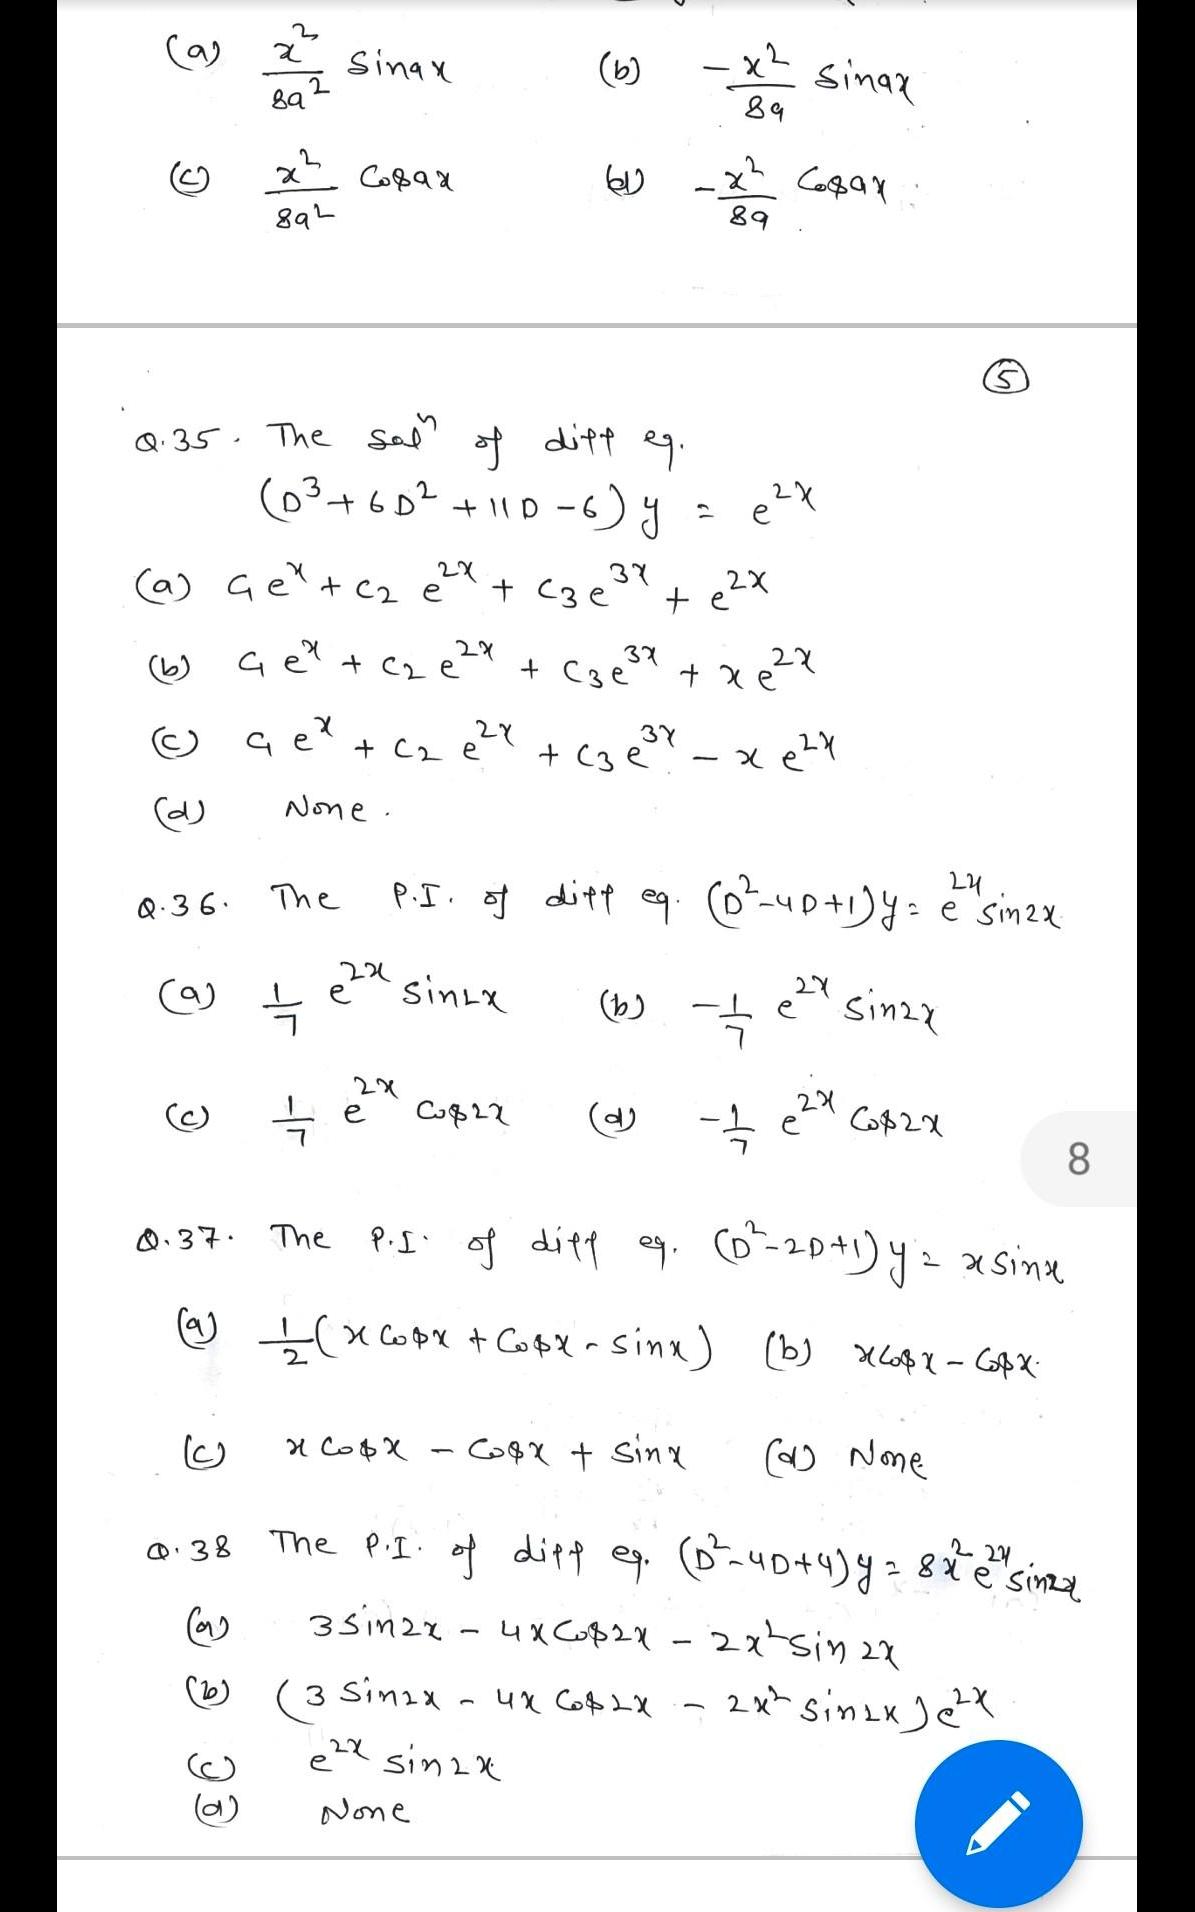 (a) x²/8a² Sinax (b) -x²/8a Sinax
(c) x²/8a² Cosax (d) -x²/8a Cosax
5
Q.35. The solⁿ of diff eq.
(D³ + 6D² + 11D - 6) y = e^2x
(a) C₁e^x + C₂ e^2x + C₃e^3x + e^2x
(b) C₁e^x + C₂ e^2x + C₃e^3x + x e^2x
(c) C₁e^x + C₂ e^2x + C₃e^3x - x e^2x
(d) None.
Q.36. The P.I. of diff eq. (D²-4D+1)y = e^2x sin2x
(a) 1/7 e^2x sin2x (b) -1/7 e^2x sin2x
(c) 1/7 e^2x Cos2x (d) -1/7 e^2x Cos2x
8
Q.37. The P.I. of diff eq. (D²-2D+1) y = x sinx
(a) 1/2 (x Cosx + Cosx - sinx) (b) xCosx - Cosx.
(c) x Cosx - Cosx + sinx (d) None
Q.38 The P.I. of diff eq. (D²-4D+4) y = 8x² e^2x sin2x
(a) 3sin2x - 4xCos2x - 2x²sin 2x
(b) (3 Sin2x - 4x Cos2x - 2x² sin2x) e^2x
(c) e^2x sin2x
(d) None